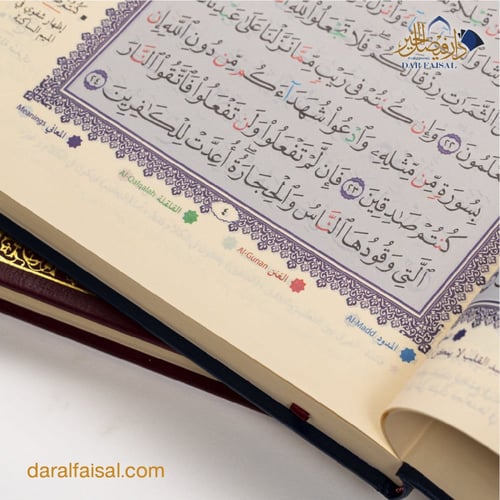 دار فيصل
DAR FAISAL
ٱلثَّمَرَٰتِ رِزْقًا لَّكُمْ فَلَا تَجْعَلُوا۟
لَمُونَ ٢٢ وَإِن كُنتُمْ فِى رَيْبٍ مِّمَّا نَزَّلْنَا عَلَىٰ عَبْدِنَا
بِسُورَةٍ مِّن مِّثْلِهِۦ وَٱدْعُوا۟ شُهَدَآءَكُم مِّن دُونِ ٱللَّهِ إِن
كُنتُمْ صَٰدِقِينَ ٢٣ فَإِن لَّمْ تَفْعَلُوا۟ وَلَن تَفْعَلُوا۟ فَٱتَّقُوا۟ ٱلنَّارَ
ٱلَّتِى وَقُودُهَا ٱلنَّاسُ وَٱلْحِجَارَةُ أُعِدَّتْ لِلْكَٰفِرِينَ ٢٤
إظهار شفوي في
الميم الساكنة
المعاني Meanings
٤
القلقلة Al-Qalqalah
الغنن Al-Gunan
المدود Al-Madd
daralfaisal.com